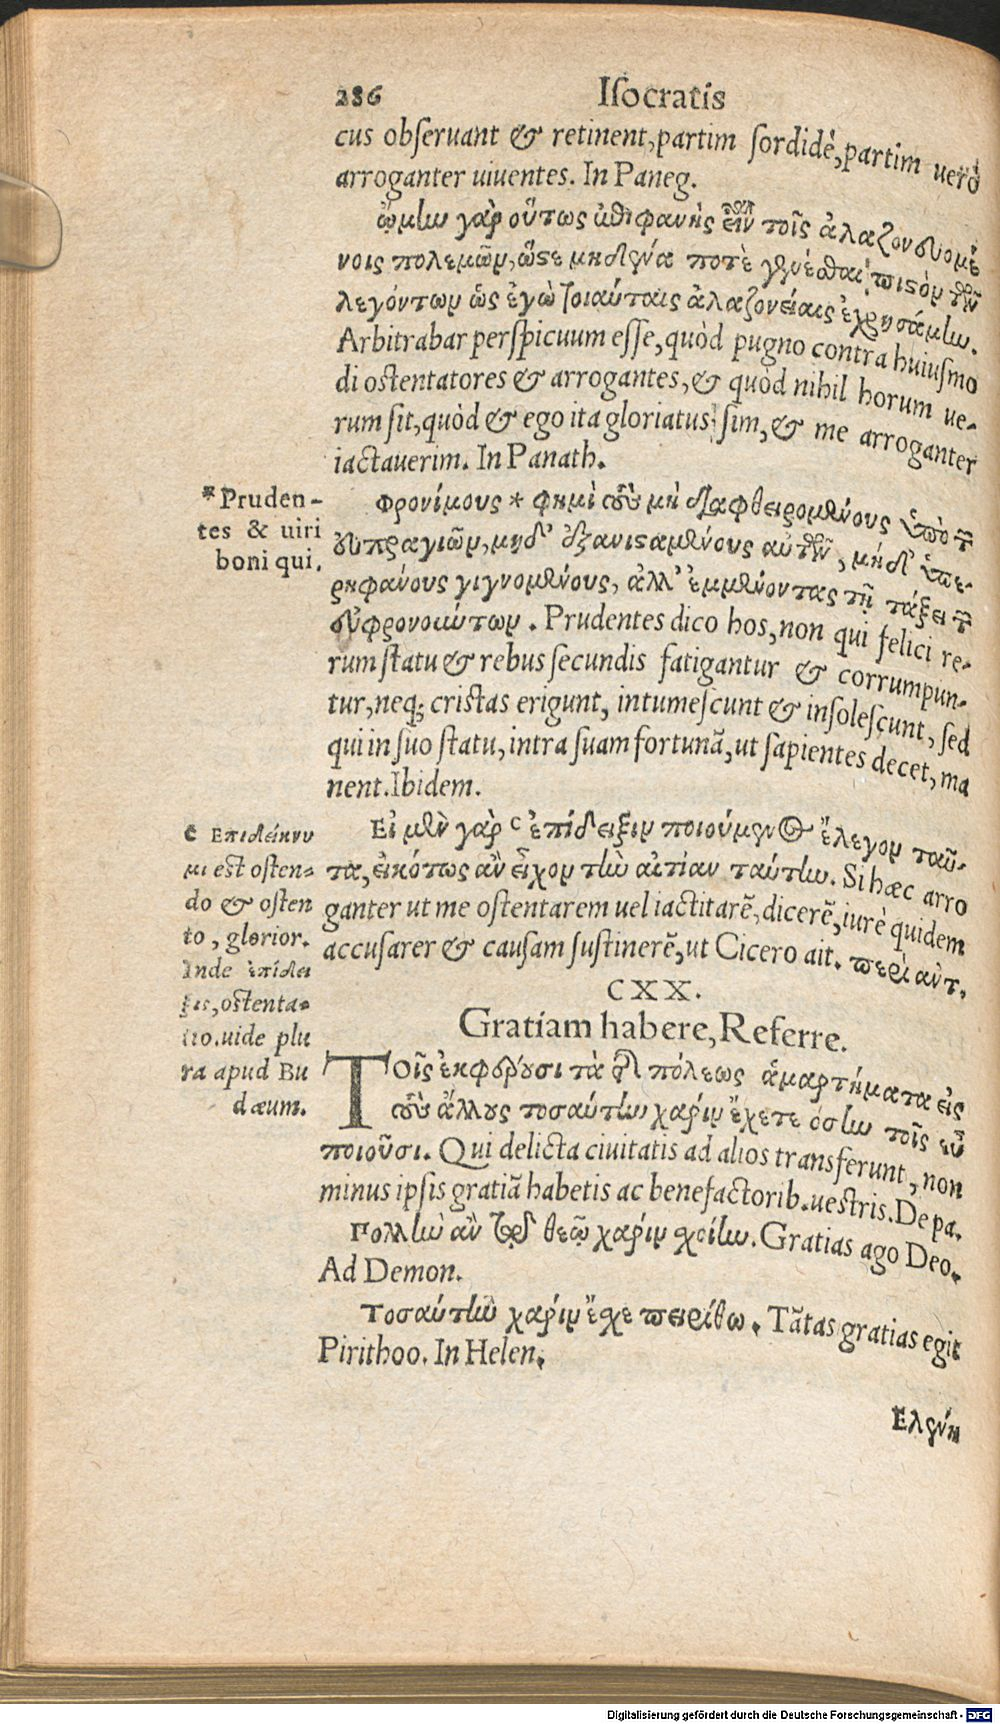 286 Iſocratis
cus obſeruant & retinent, partim ſordidè, partim uerò
arroganter uiuentes. In Paneg.
ᾤμην γὰρ οὕτως ἐπιφανὴς εἶναι τοῖς ἀλαζονευομέ
νοις πολεμῶν, ὥστε μηδένα ποτὲ γενέσθαι πιστὸν τῶν
λεγόντων ὡς ἐγὼ τοιαύταις ἀλαζονείαις ἐχρησάμην.
Arbitrabar perſpicuum eſſe, quòd pugno contra huiuſmo
di oſtentatores & arrogantes, & quòd nihil horum ue-
rum ſit, quòd & ego ita gloriatus ſim, & me arroganter
iactauerim. In Panath.
*Pruden-
tes & uiri
boni qui.
φρονίμους * φημὶ τοὺς μὴ διαφθειρομένους ὑπὸ τ̃
εὐπραγιῶν, μηδ' ἐξανισταμένους αὐτῶν, μηδ' ὑπε-
ρηφάνους γιγνομένους, ἀλλ' ἐμμένοντας τῇ τάξει τ̃
εὐφρονούντων. Prudentes dico hos, non qui felici re-
rum ſtatu & rebus ſecundis fatigantur & corrumpun-
tur, neq; criſtas erigunt, intumeſcunt & inſoleſcunt, ſed
qui in ſuo ſtatu, intra ſuam fortunã, ut ſapientes decet, ma
nent. Ibidem.
c Επιδείκνυ
μι est oſten-
do & oſten
to, glorior.
Inde ἐπίδει
ξις, oſtenta-
tio. uide plu
ra apud Bu
dæum.
Εἰ μὲν γὰρ c ἐπίδειξιν ποιούμενος ἔλεγον ταῦ-
τα, εἰκότως ἂν εἶχον τὴν αἰτίαν ταύτην. Si hæc arro
ganter ut me oſtentarem uel iactitarẽ, dicerẽ, iurè quidem
accuſarer & cauſam ſuſtinerẽ, ut Cicero ait. περὶ αὐτ.
CXX.
Gratiam habere, Referre.
ΤΟῖς ἐκφέρουσι τὰ τῆς πόλεως ἁμαρτήματα εἰς
τοὺς ἄλλους τοσαύτην χάριν ἔχετε ὅσην τοῖς εὖ
ποιοῦσι. Qui delicta ciuitatis ad alios transferunt, non
minus ipſis gratiã habetis ac benefactorib. ueſtris. De pa.
Πολλὴν ἂν τοῖς θεοῖς χάριν ἔχοιεν. Gratias ago Deo.
Ad Demon.
Τοσαύτην χάριν ἔχε πειρίθῳ. Tãtas gratias egit
Pirithoo. In Helen.
Ελένη
Digitalisierung gefördert durch die Deutsche Forschungsgemeinschaft - DFG